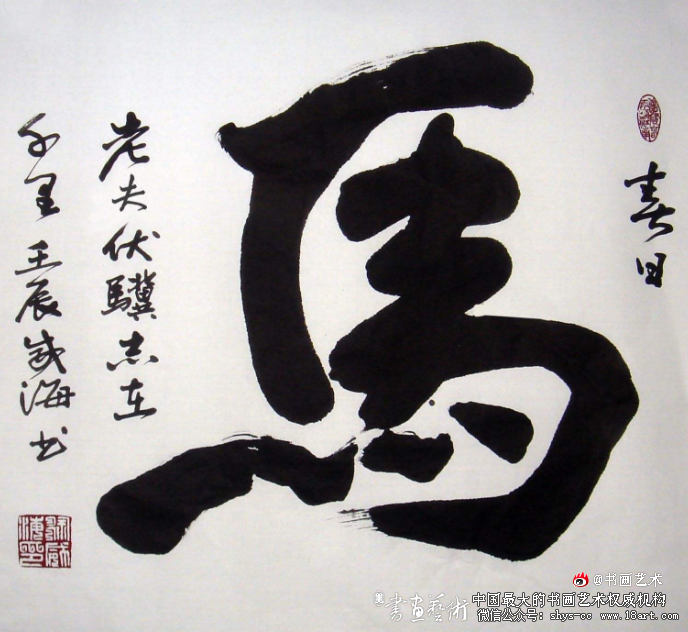 春日
馬
老夫伏驥志在
千里 壬辰 威海书
@书画艺术
書画藝術
中国最大的书画艺术权威机构
微信公众号：shys-cc www.18art.com